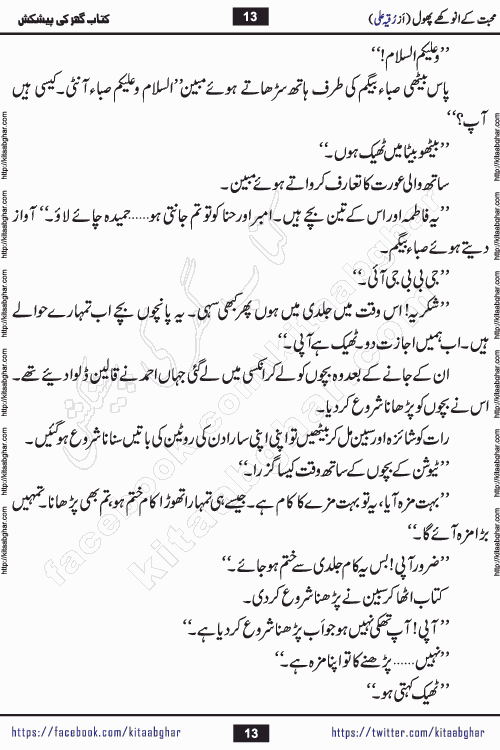 محبت کے انوکھے پھول (از رُقیہ علی)
13
کتاب گھر کی پیشکش
’’وعلیکم السلام!‘‘
پاس بیٹھی صباء بیگم کی طرف ہاتھ بڑھاتے ہوئے مبین ’’السلام وعلیکم صباء آنٹی۔ کیسی ہیں
آپ؟‘‘
’’بیٹھو بیٹا میں ٹھیک ہوں۔‘‘
ساتھ والی عورت کا تعارف کرواتے ہوئے مبین۔
’’یہ فاطمہ اور اس کے تین بچے ہیں۔ امبر اور حنا کو تو تم جانتی ہو......حمیدہ چائے لاؤ۔‘‘ آواز
دیتے ہوئے صباء بیگم۔
’’جی بی بی جی آئی۔‘‘
’’شکریہ! اس وقت میں جلدی میں ہوں پھر کبھی سہی۔ یہ پانچوں بچے اب تمہارے حوالے
ہیں۔ اب ہمیں اجازت دو۔ ٹھیک ہے آپی۔‘‘
ان کے جانے کے بعد وہ بچوں کو لے کر انکسی میں لے گئی جہاں احمد نے قالین ڈلوا دیئے تھے۔
اس نے بچوں کو پڑھانا شروع کر دیا۔
رات کو شائزہ اور سبین مل کر بیٹھیں تو اپنی اپنی سارا دن کی روٹین کی باتیں سنانا شروع ہو گئیں۔
’’ٹیوشن کے بچوں کے ساتھ وقت کیسا گزرا۔‘‘
’’بہت مزہ آیا، یہ تو بہت مزے کا کام ہے۔ جیسے ہی تمہارا تھوڑا کام ختم ہو، تم بھی پڑھانا۔ تمہیں
بڑا مزہ آئے گا۔‘‘
’’ضرور آپی! بس یہ کام جلدی سے ختم ہو جائے۔‘‘
کتاب اٹھا کر سبین نے پڑھنا شروع کر دی۔
’’آپی! آپ تھکی نہیں ہو جو اَب پڑھنا شروع کر دیا ہے۔‘‘
’’نہیں...... پڑھنے کا تو اپنا مزہ ہے۔‘‘
’’ٹھیک کہتی ہو۔‘‘
https://facebook.com/kitaabghar
13
https://twitter.com/kitaabghar
http://kitaabghar.com
http://kitaabghar.com
http://kitaabghar.com
http://kitaabghar.com
http://kitaabghar.com
http://kitaabghar.com
http://kitaabghar.com
http://kitaabghar.com
http://kitaabghar.com
http://kitaabghar.com
http://kitaabghar.com
http://kitaabghar.com
کتاب گھر کی پیشکش
kitaabghar.com
facebook.com/kitaabghar